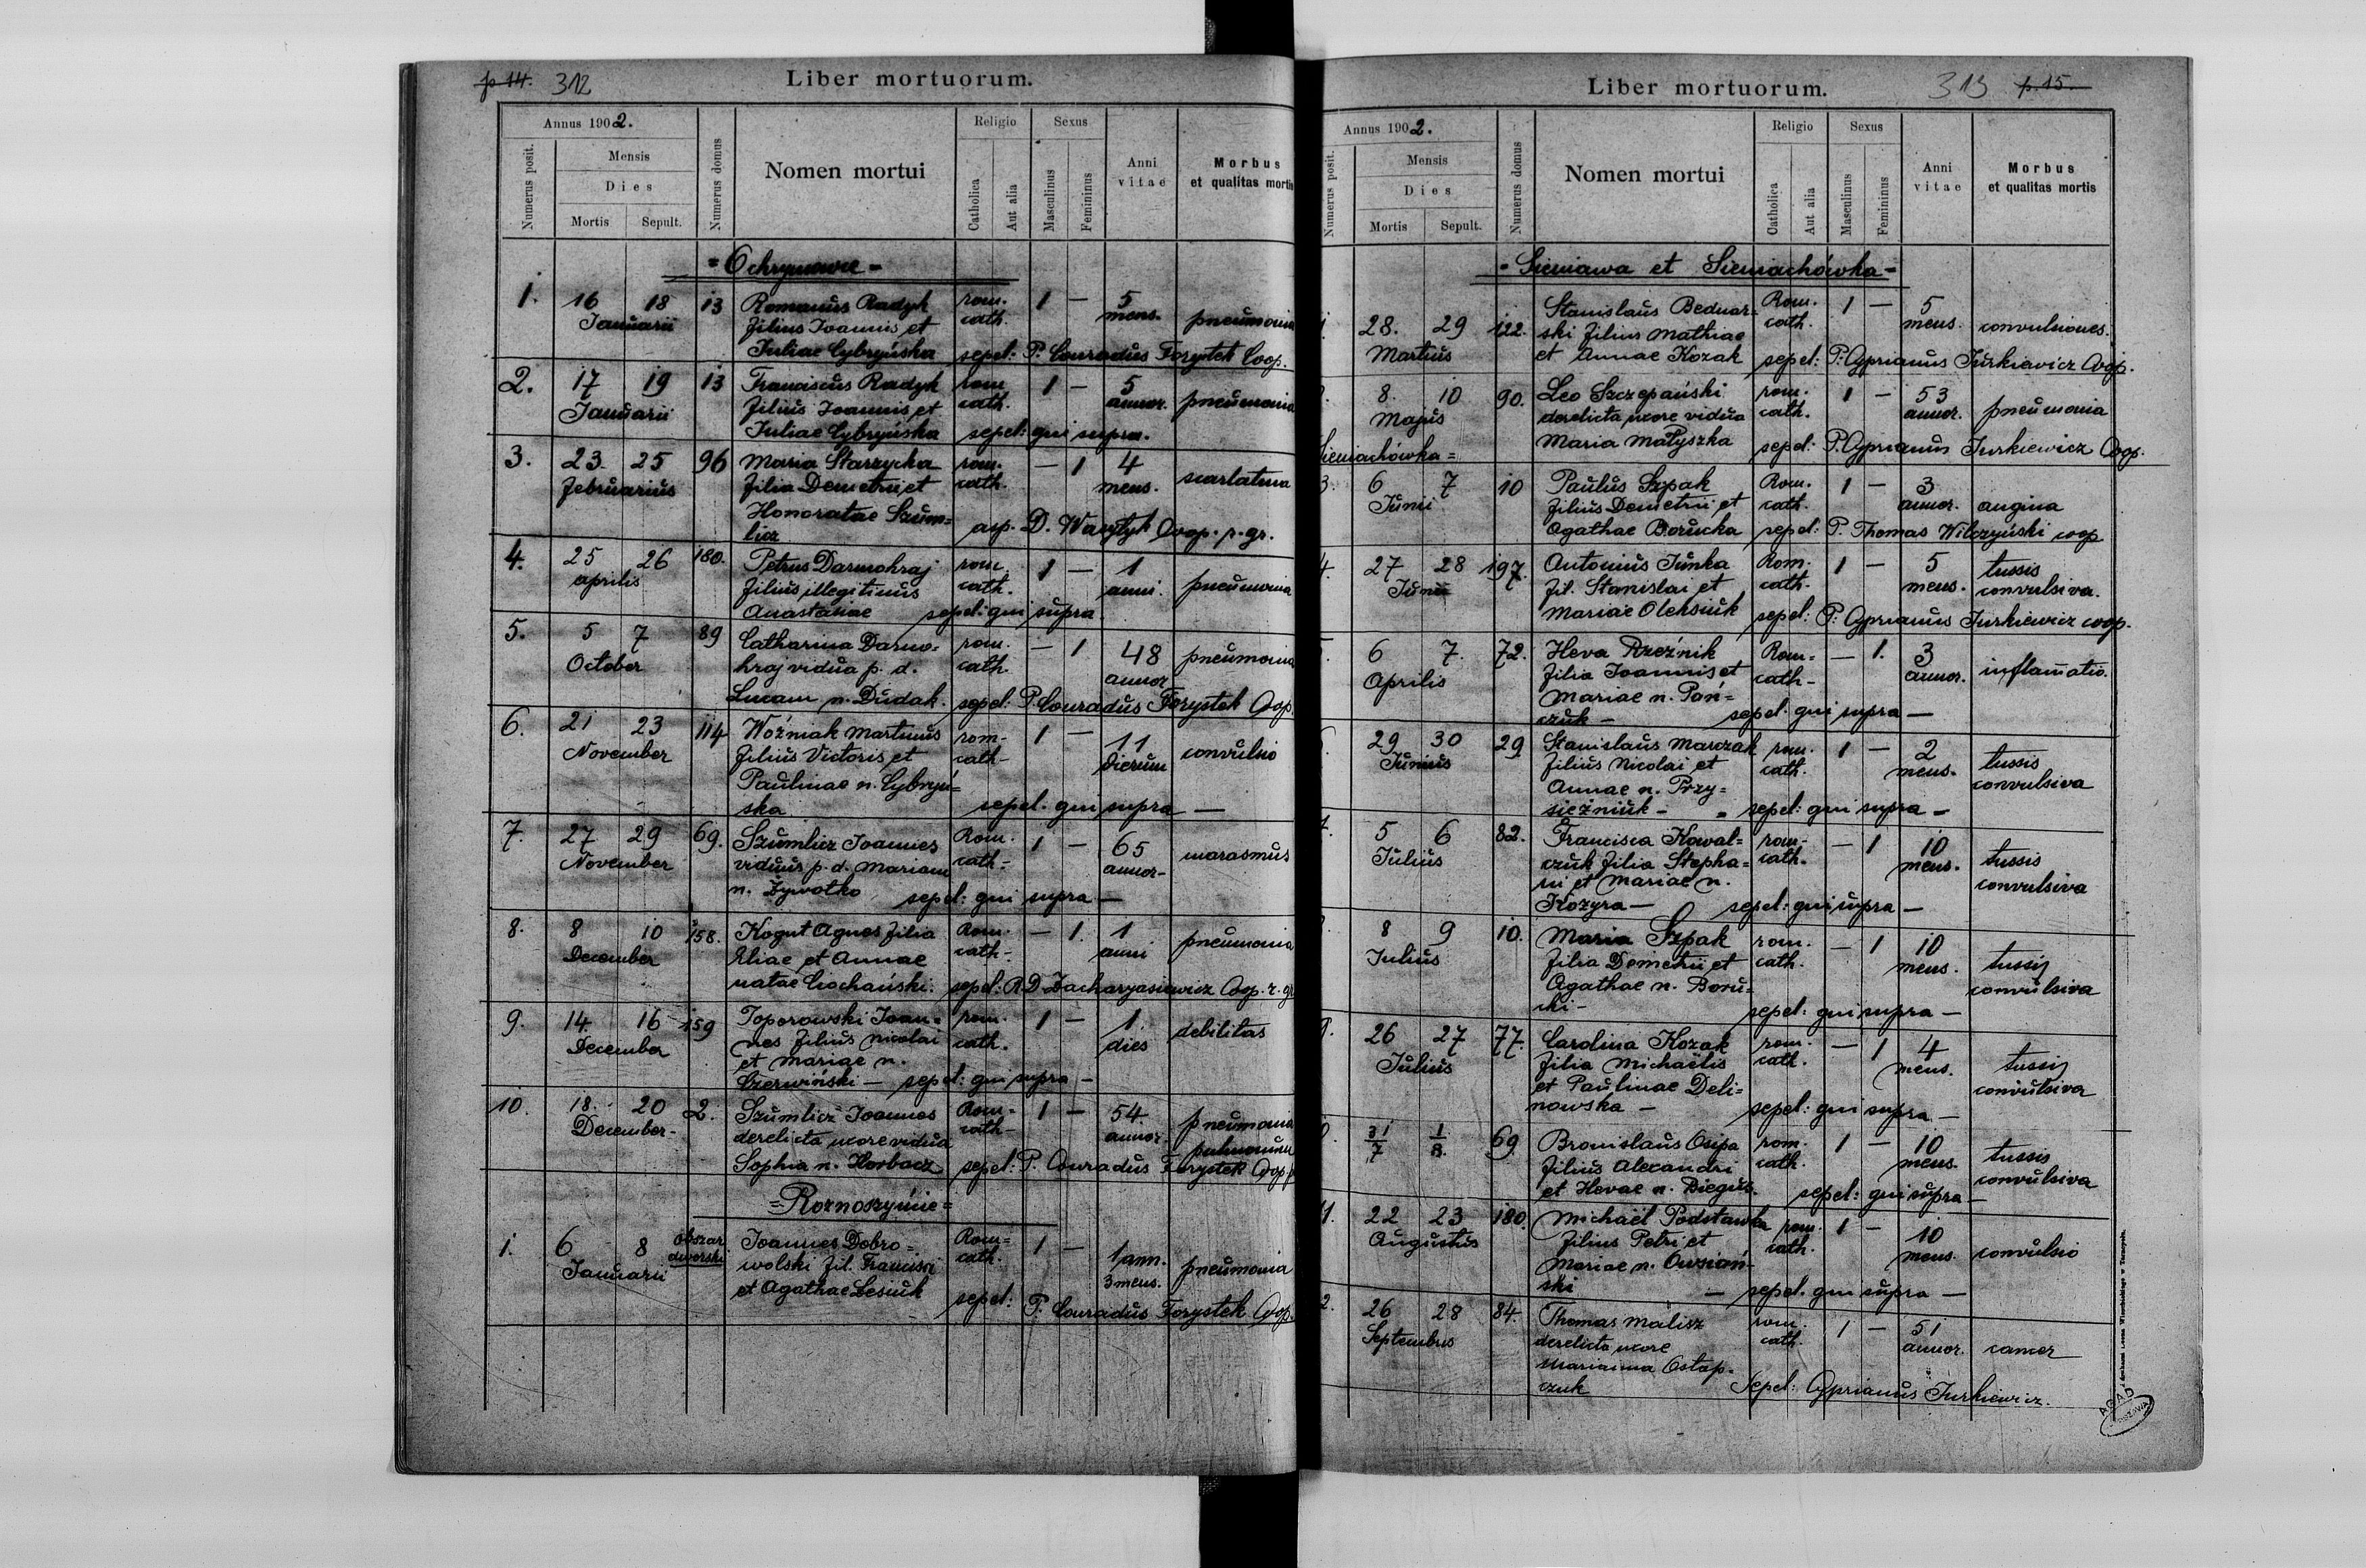 p 14. 312
Liber mortuorum.
Annus 1902.
Numerus posit.
Mensis
Dies
Mortis Sepult.
Numerus domus
Nomen mortui
Religio
Catholica
Aut alia
Sexus
Masculinus
Femininus
Anni vitae
Morbus et qualitas mortis
= Ochrymowce =
1. 16 18 13 Romanus Radyk rom. 1 — 5
Januarii filius Joannis et cath. mens. pneumonia
Juliae Cybryńska sepel: P. Conradus Forystek Coop.
2. 17 19 13 Franciscus Radyk rom. 1 — 5
Januarii filius Joannis et cath. annor. pneumonia
Juliae Cybryńska sepel: qui supra.
3. 23. 25 96 Maria Starzycka rom. — 1 4
Februarius filia Demetrii et cath. mens. scarlatina
Honoratae Szum=
licz asp. D. Coop. r. gr.
4. 25 26 180. Petrus Darmohraj rom. 1 — 1
aprilis filius illegitimus cath. anni. pneumonia
Anastasiae sepel: qui supra.
5. 5 7 89 Catharina Darmo= rom. — 1 48 pneumonia
October hraj vidua p. d. cath. annor
Lucam n. Dudak. sepel: P. Conradus Forystek Coop.
6. 21 23 114 Woźniak Martinus rom- 1 — 11
November filius Victoris et cath- dierum convulsio
Paulinae n. Cybryń=
ska sepel. qui supra —
7. 27 29 69. Szumlicz Joannes Rom. 1 — 65 marasmus
November viduus p. d. Mariam cath- annor-
n. Żywotko sepel: qui supra —
8. 8 10 158. Kogut Agnes filia Rom. — 1. 1 pneumonia
December Eliae et Annae cath- anni
natae Ciochański. sepel: R.D. Zacharyasiewicz Coop. r. gr
9. 14. 16 159 Toporowski Joan= rom. 1 — 1. debilitas
December nes filius Nicolai cath. dies
et Mariae n.
Czerwiński — sepel: qui supra —
10. 18. 20 2. Szumlicz Joannes Rom- 1 — 54. pneumonia
December- derelicta uxore vidua cath- annor.
Sophia n. Horbacz sepel: P. Conradus Forystek Coop.
= Roznoszyńce =
1. 6 8 obszar dworski Joannes Dobro= Rom= 1 — 1 ann.
Januarii wolski fil. Francisci cath. 3 mens. pneumonia
et Agathae Lesiuk sepel: P. Conradus Forystek Coop.
Liber mortuorum.
313 p. 15
Annus 1902.
Numerus posit.
Mensis
Dies
Mortis Sepult.
Numerus domus
Nomen mortui
Religio
Catholica
Aut alia
Sexus
Masculinus
Femininus
Anni vitae
Morbus et qualitas mortis
= Sieniawa et Sieniachówka =
28. 29 122. Stanislaus Bednar= Rom. 1 — 5
Martius ski filius Mathiae cath. mens. convulsiones.
et Annae Kozak sepel: P. Cyprianus Jurkiewicz Coop.
8. 10 90. Leo Szczepański rom. 1 — 53
Majus derelicta uxore vidua cath. annor. pneumonia
Maria Małyszka sepel: P. Cyprianus Jurkiewicz Coop.
Sieniachówka =
3. 6 7 10 Paulus Szpak Rom. 1 — 3
Junii filius Demetrii et cath. annor. angina
Agathae Borucka sepel: P. Thomas Wilczyński coop
4. 27 28 197. Antonius Junka Rom. 1 — 5 tussis
Junii fil. Stanislai et cath. mens. convulsiva.
Mariae Oleksiuk sepel: P. Cyprianus Jurkiewicz coop.
6 7. 72. Heva Rzeźnik Rom= — 1. 3
Aprilis filia Joannis et cath- annor. inflamatio.
Mariae n. Pań=
czuk — sepel. qui supra —
29 30 29. Stanislaus Marczak rom. 1 — 2
Junius filius Nicolai et cath. mens. tussis
Annae n. Przy= convulsiva
sieżniuk — sepel: qui supra —
5 6 82. Francisca Kowal= rom- — 1 10
Julius czuk filia Stepha= cath. mens. tussis
ni et Mariae n. convulsiva
Kozyra — sepel: qui supra —
8 9 10. Maria Szpak rom. — 1 10
Julius filia Demetrii et cath. mens. tussis
Agathae n. Boru= convulsiva
cki — sepel: qui supra —
26 27 77. Carolina Kozak rom. — 1 4
Julius filia Michaëlis cath. mens. tussis
et Paulinae Deli= convulsiva
nowska — sepel: qui supra —
31/7 1/8. 69. Bronislaus Osipa rom. 1 — 10 tussis
filius Alexandri cath. mens. convulsiva
et Hevae n. Biegus. sepel: qui supra —
22 23 180. Michaël Podstawka rom. 1 — 10
Augustus filius Petri et cath. mens. convulsio
Mariae n. Owsiań=
ski — sepel. qui supra —
26 28 84. Thomas Malisz rom. 1 — 51
Septembris derelicta uxore cath. annor. cancer
Marianna Ostap=
czuk Sepel: Cyprianus Jurkiewicz.